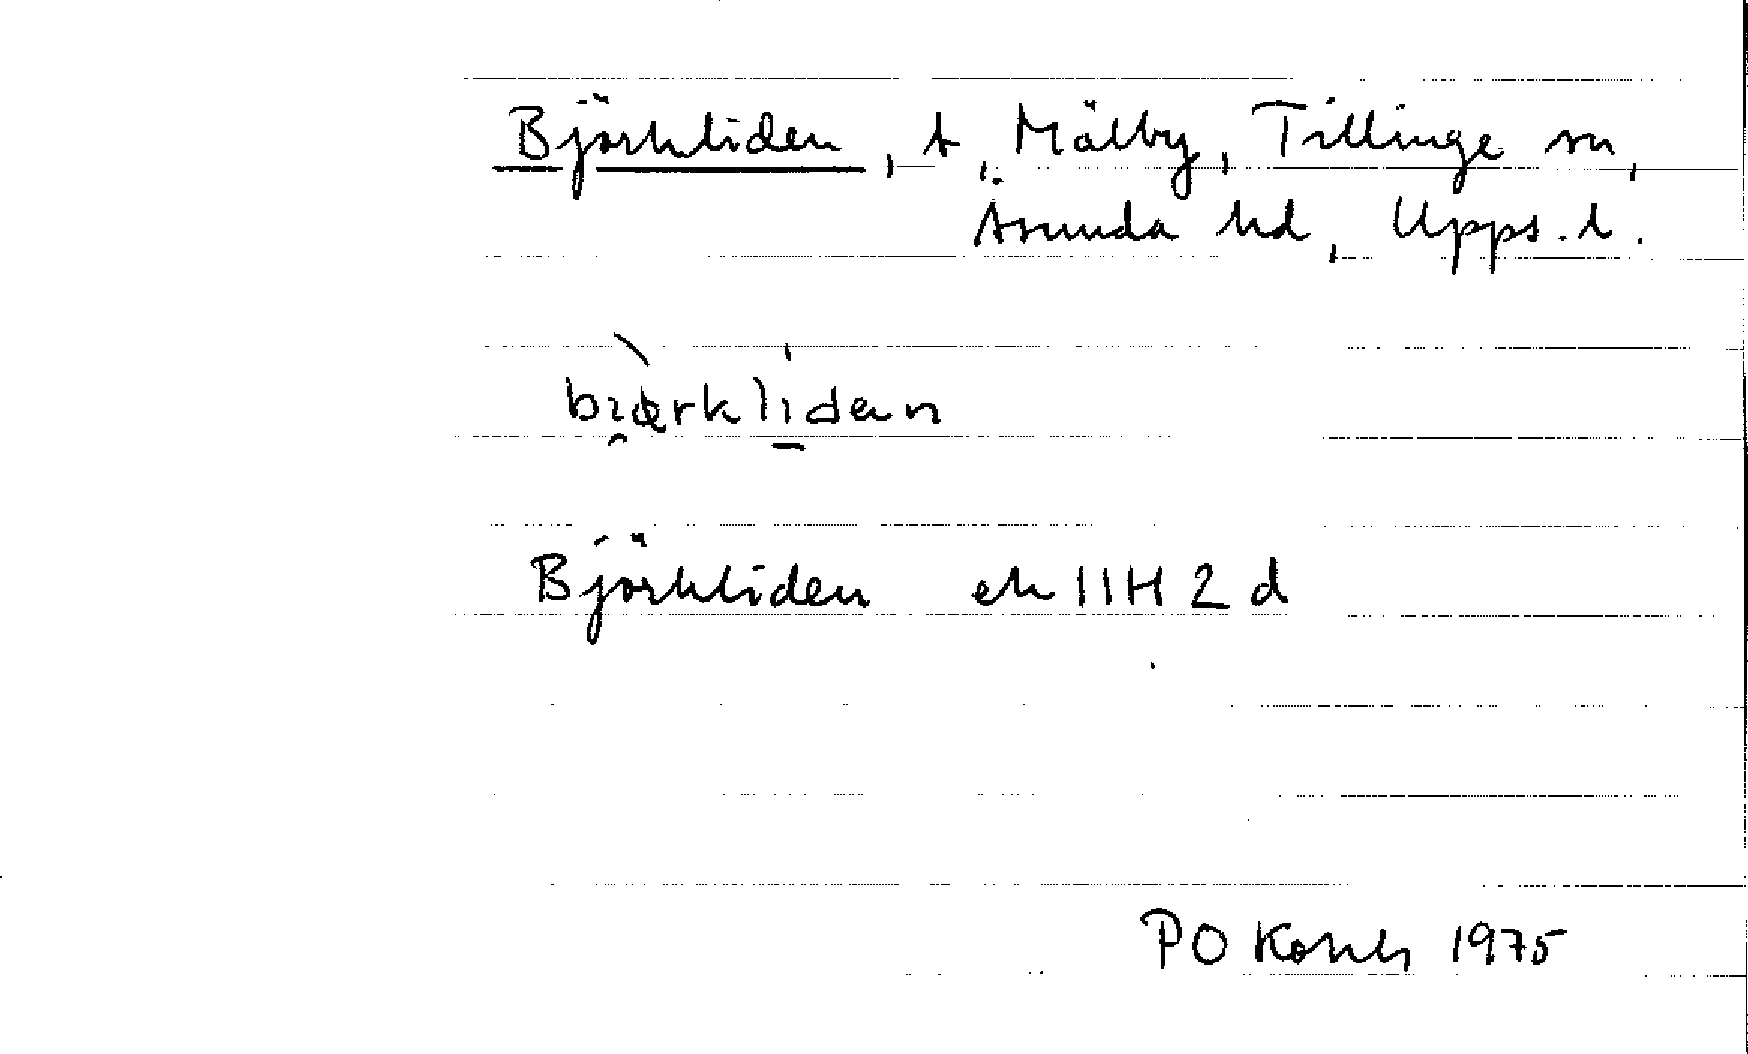 Björkliden, t, Mälby, Tillinge sn,
Åsunda hd, Upps. l.
bi̯ørkli̠dən
Björkliden ek 11H 2 d
PO 1975